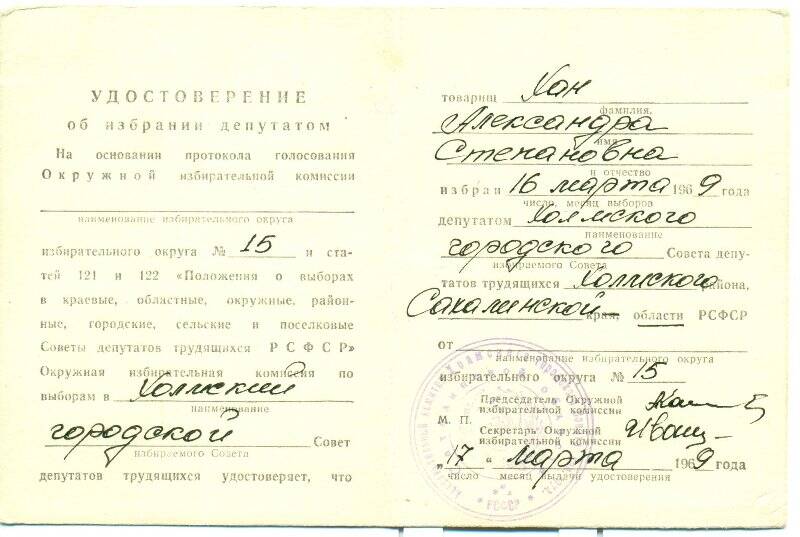 УДОСТОВЕРЕНИЕ
об избрании депутатом
На основании протокола голосования
Окружной избирательной комиссии
наименование избирательного округа
избирательного округа № 15 и ста-
тей 121 и 122 «Положения о выборах
в краевые, областные, окружные, район-
ные, городские, сельские и поселковые
Советы депутатов трудящихся РСФСР»
Окружная избирательная комиссия по
выборам в Холмский
наименование
городской Совет
избираемого Совета
депутатов трудящихся удостоверяет, что
товарищ Хан
фамилия,
Александра
имя
Степановна
и отчество
избран 16 марта 1969 года
число, месяц выборов
депутатом Холмского
наименование
городского Совета депу-
избираемого Совета
татов трудящихся Холмского района,
Сахалинской края, области РСФСР
от
наименование избирательного округа
избирательного округа № 15
Председатель Окружной
избирательной комиссии
М. П.
Секретарь Окружной
избирательной комиссии
„17“ марта 1969 года
число месяц выдачи удостоверения
РСФСР